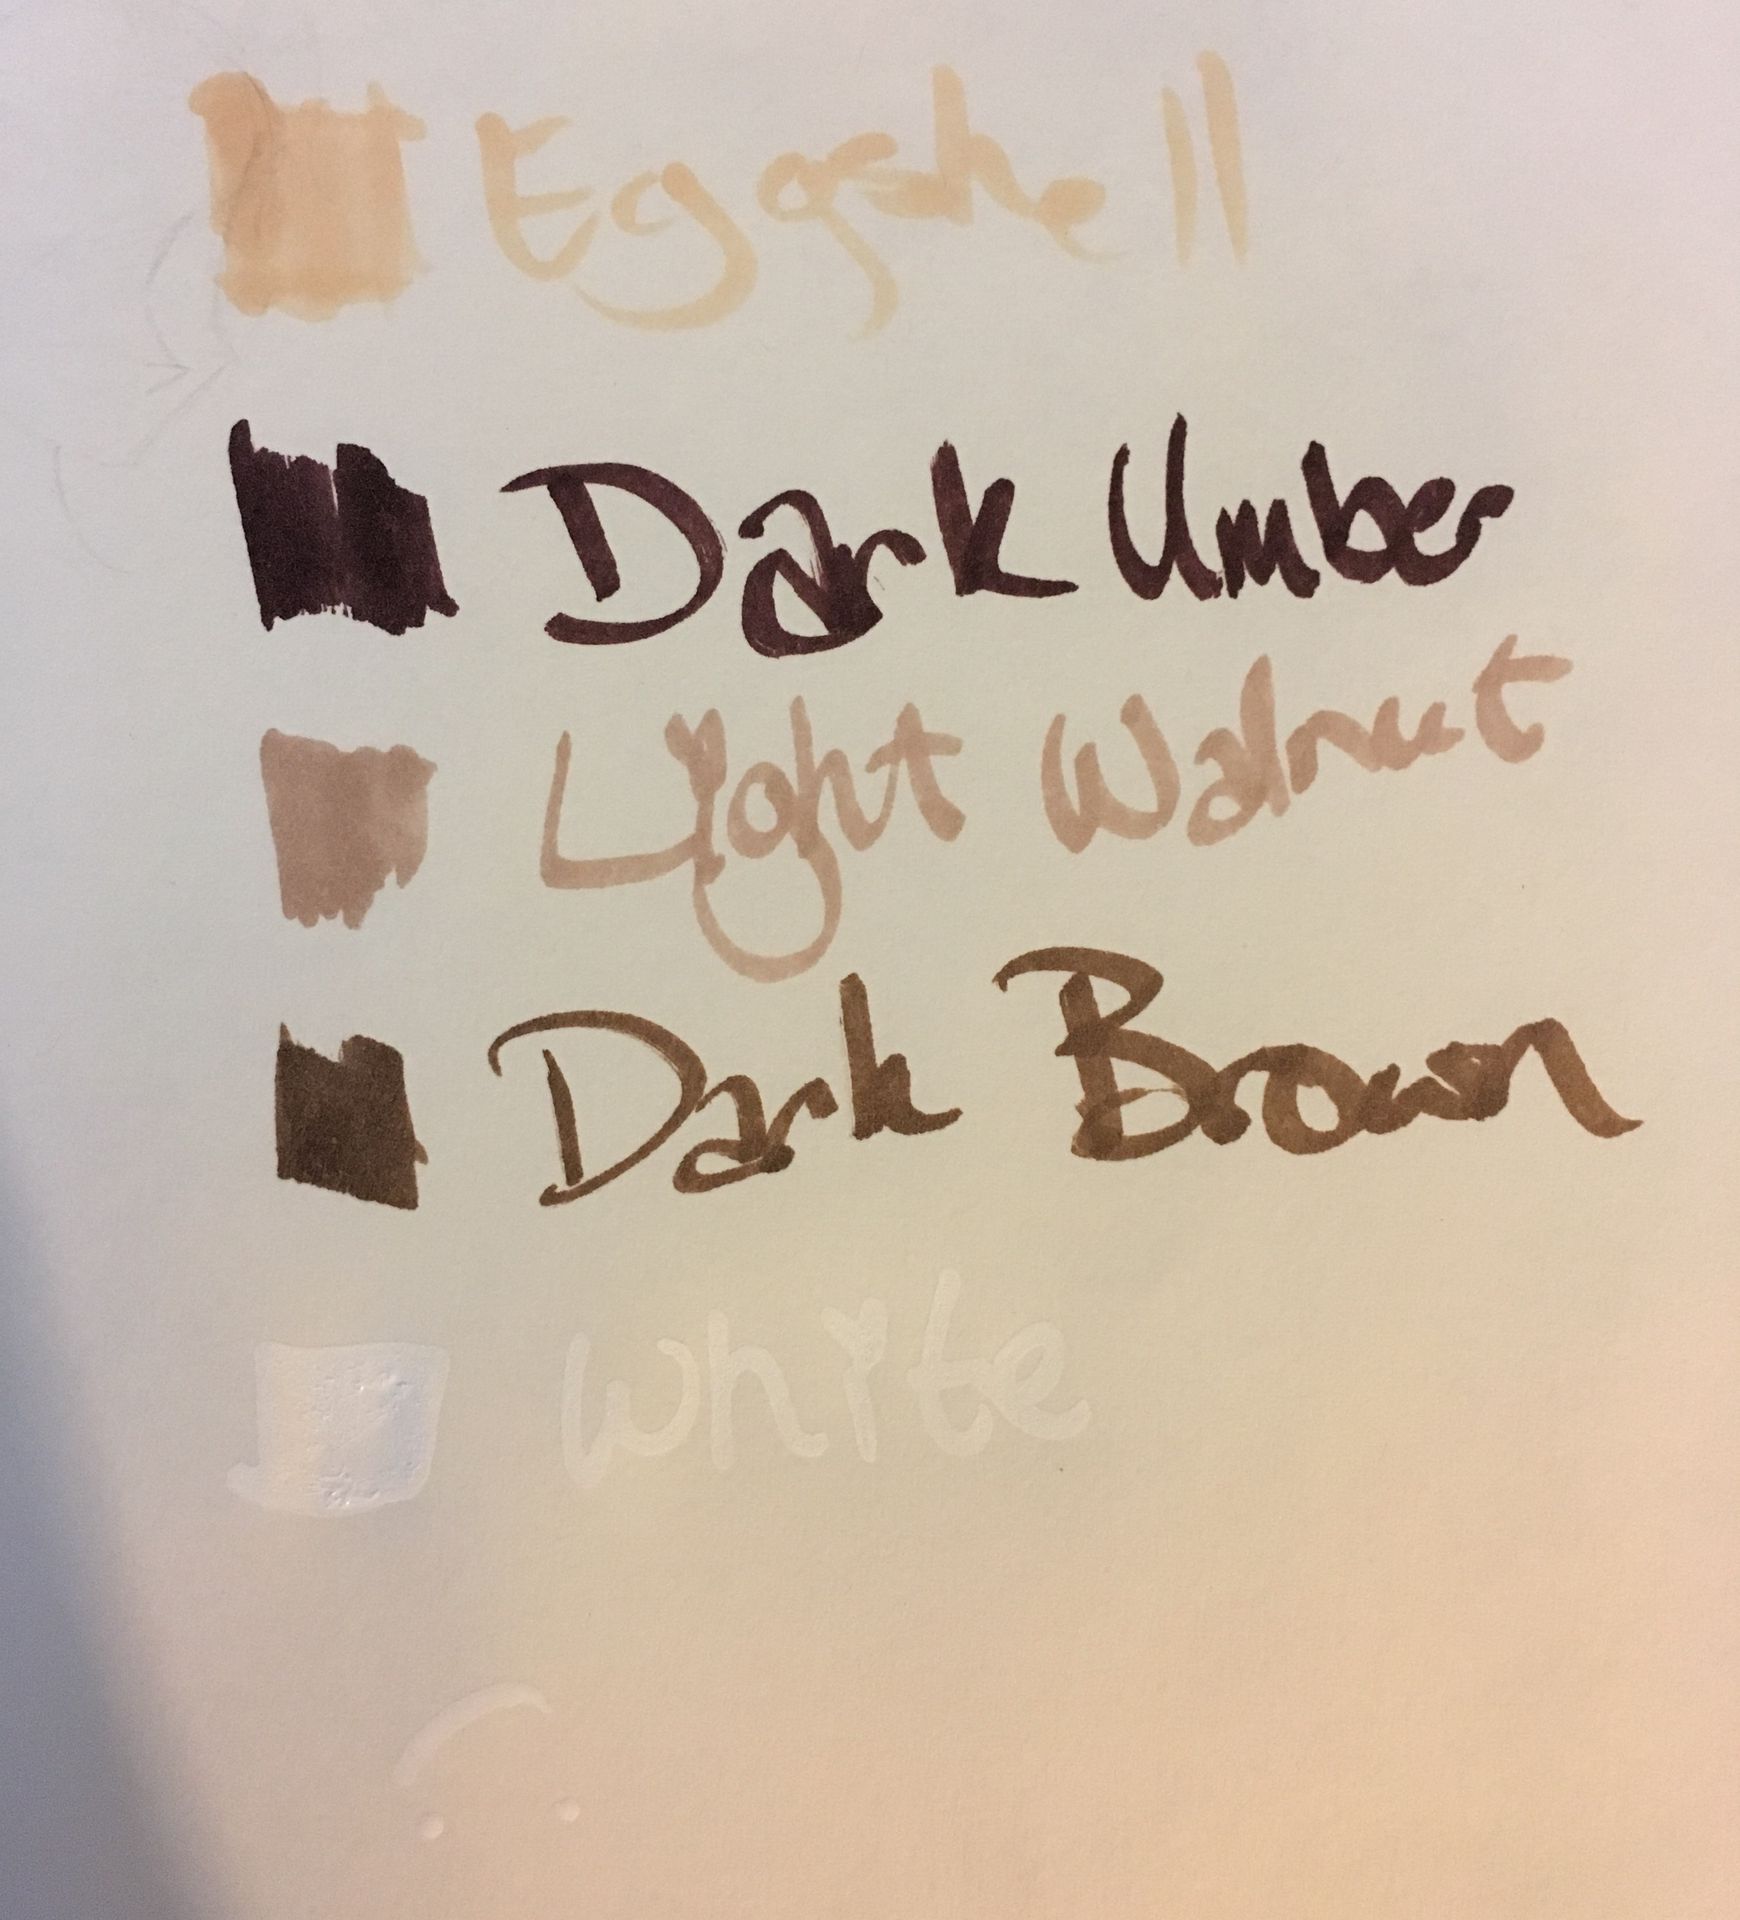 Eggshell
Dark Umber
Light Walnut
Dark Brown
White